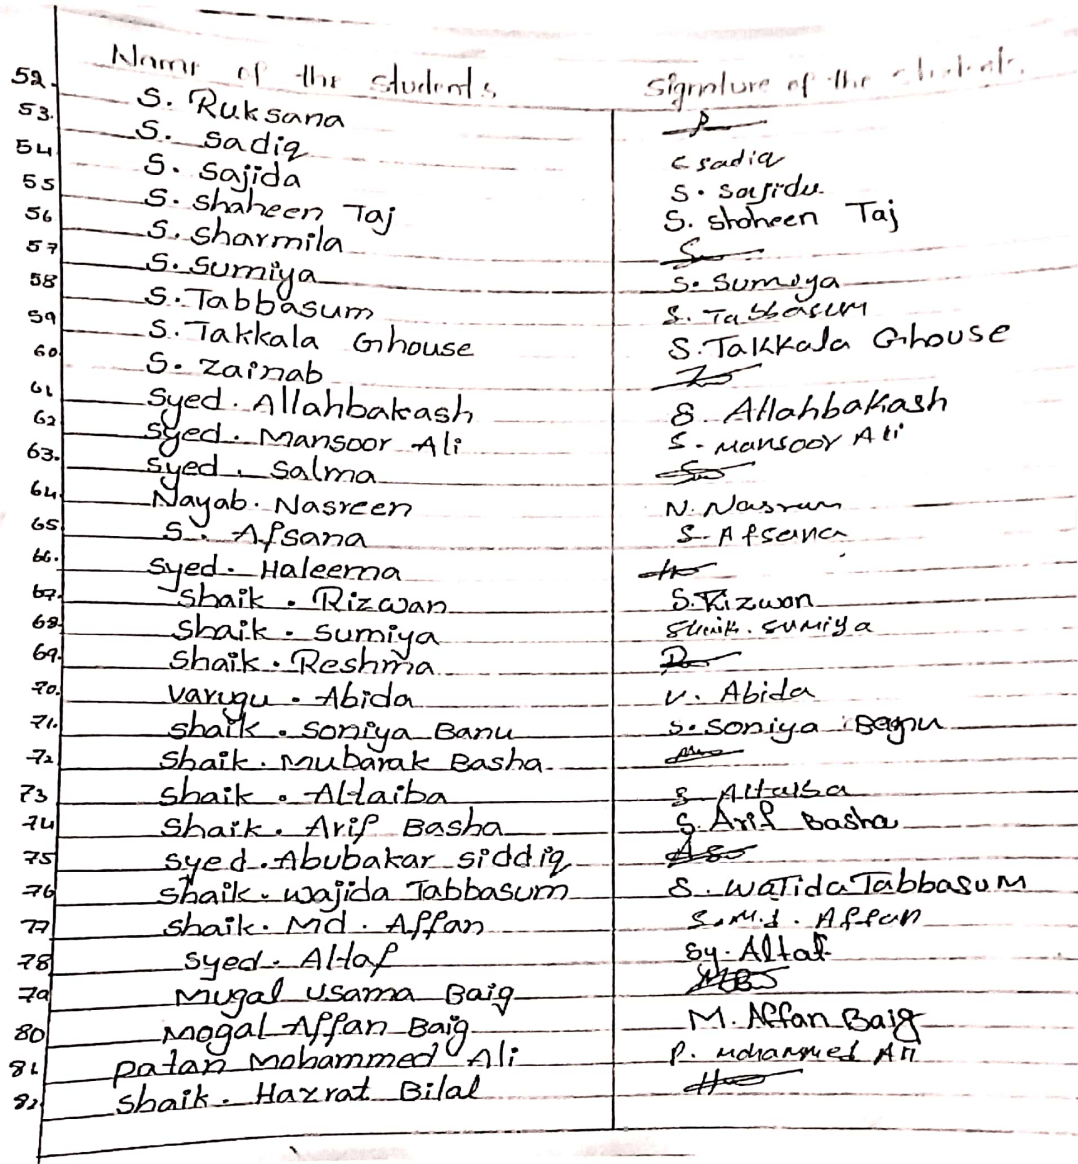 Name of the students Signature of the
52. S. Ruksana
53. S. Sadiq sadiq
54 S. Sajida S. Sajida
55 S. Shaheen Taj S. Shaheen Taj
56 S. Sharmila
57 S. Sumiya S. Sumiya
58 S. Tabbasum S. Tabbasum
59 S. Takkala Ghouse S. Takkala Ghouse
60 S. Zainab
61 Syed. Allahbakash S. Allahbakash
62 Syed. Mansoor Ali S. Mansoor Ali
63. Syed. Salma
64. Nayab. Nasreen N. Nasreen
65 S. Afsana S. Afsana
66. Syed. Haleema
67. Shaik. Rizwan S. Rizwan
68. Shaik. Sumiya Shaik. Sumiya
69. Shaik. Reshma
70. Varugu. Abida V. Abida
71. Shaik. Soniya Banu S. Soniya Banu
72 Shaik. Mubarak Basha
73 Shaik. Altaiba S Altaiba
74 Shaik. Arif Basha S. Arif Basha
75 Syed. Abubakar Siddiq
76 Shaik. Wajida Tabbasum S. Wajida Tabbasum
77 Shaik. Md. Affan S. Md. Affan
78 Syed. Altaf Sy. Altaf
79 Mugal Usama Baig
80 Mogal Affan Baig M. Affan Baig
81 Patan Mohammed Ali P. Mohammed Ali
82 Shaik. Hazrat Bilal